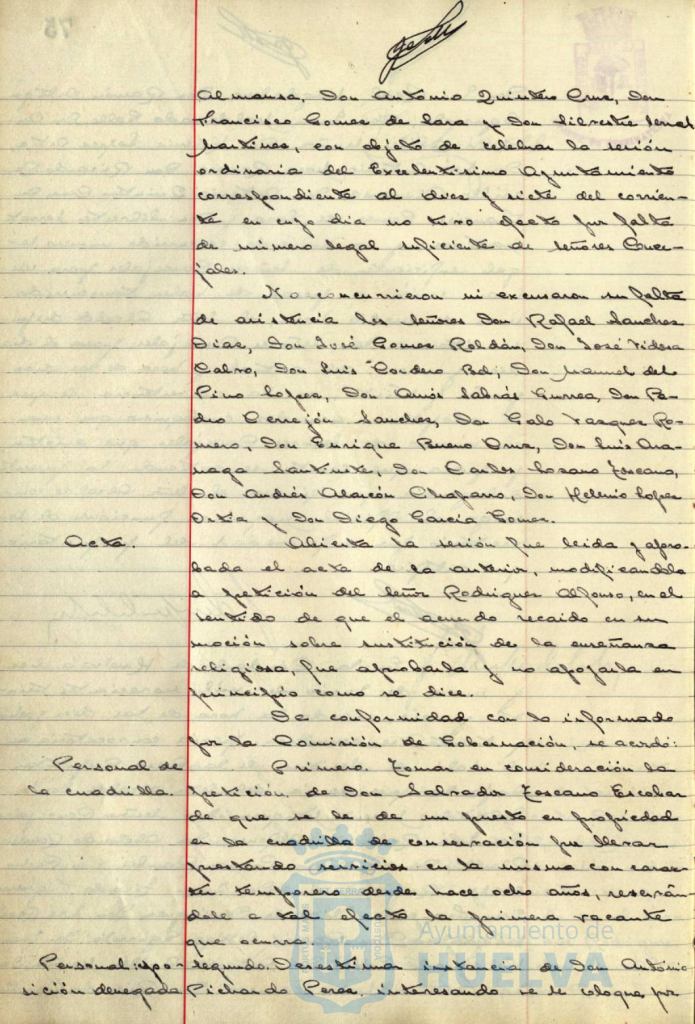 Almansa, Don Antonio Quintero Cruz, Don
Francisco Gomez de Lara y Don Silvestre Bernal
Martinez, con objeto de celebrar la sesión
ordinaria del Excelentisimo Ayuntamiento
correspondiente al diez y siete del corrien-
te en cuyo dia no tuvo efecto por falta
de número legal suficiente de señores Conce-
jales.
No concurrieron ni excusaron su falta
de asistencia los señores Don Rafael Sanchez
Diaz, Don José Gomez Roldán, Don José Vidosa
Calvo, Don Luis Cordero Bel, Don Manuel del
Pino Lopez, Don Amós Sabrás Gurrea, Don Pe-
dro Cerrejón Sanchez, Don Galo Vazquez Ro-
mero, Don Enrique Bueno Cruz, Don Luis
Don Carlos Lozano Toscano,
Don Andrés Alarcón Chaparro, Don Helenio Lopez
Ortiz y Don Diego García Gomez.
Acta.
Abierta la sesión fue leida y apro-
bada el acta de la anterior, modificandola
a petición del señor Rodriguez Alfonso, en el
sentido de que el acuerdo recaido en su
moción sobre sustitución de la enseñanza
religiosa, fue aprobarla y no apoyarla en
principio como se dice.
De conformidad con lo informado
por la Comisión de Gobernación, se acordó:
Personal de
la cuadrilla.
Primero. Tomar en consideración la
petición de Don Salvador Toscano Escobar
de que se le de un puesto en propiedad
en la cuadrilla de conservación por llevar
prestando servicios en la misma con carac-
ter temporero desde hace ocho años, reserván-
dole a tal efecto la primera vacante
que ocurra.
Personal: opo-
sición denegada
Segundo. Desestimar instancia de Don Antonio
Pichardo Perez, interesando se le coloque por
Ayuntamiento de
HUELVA